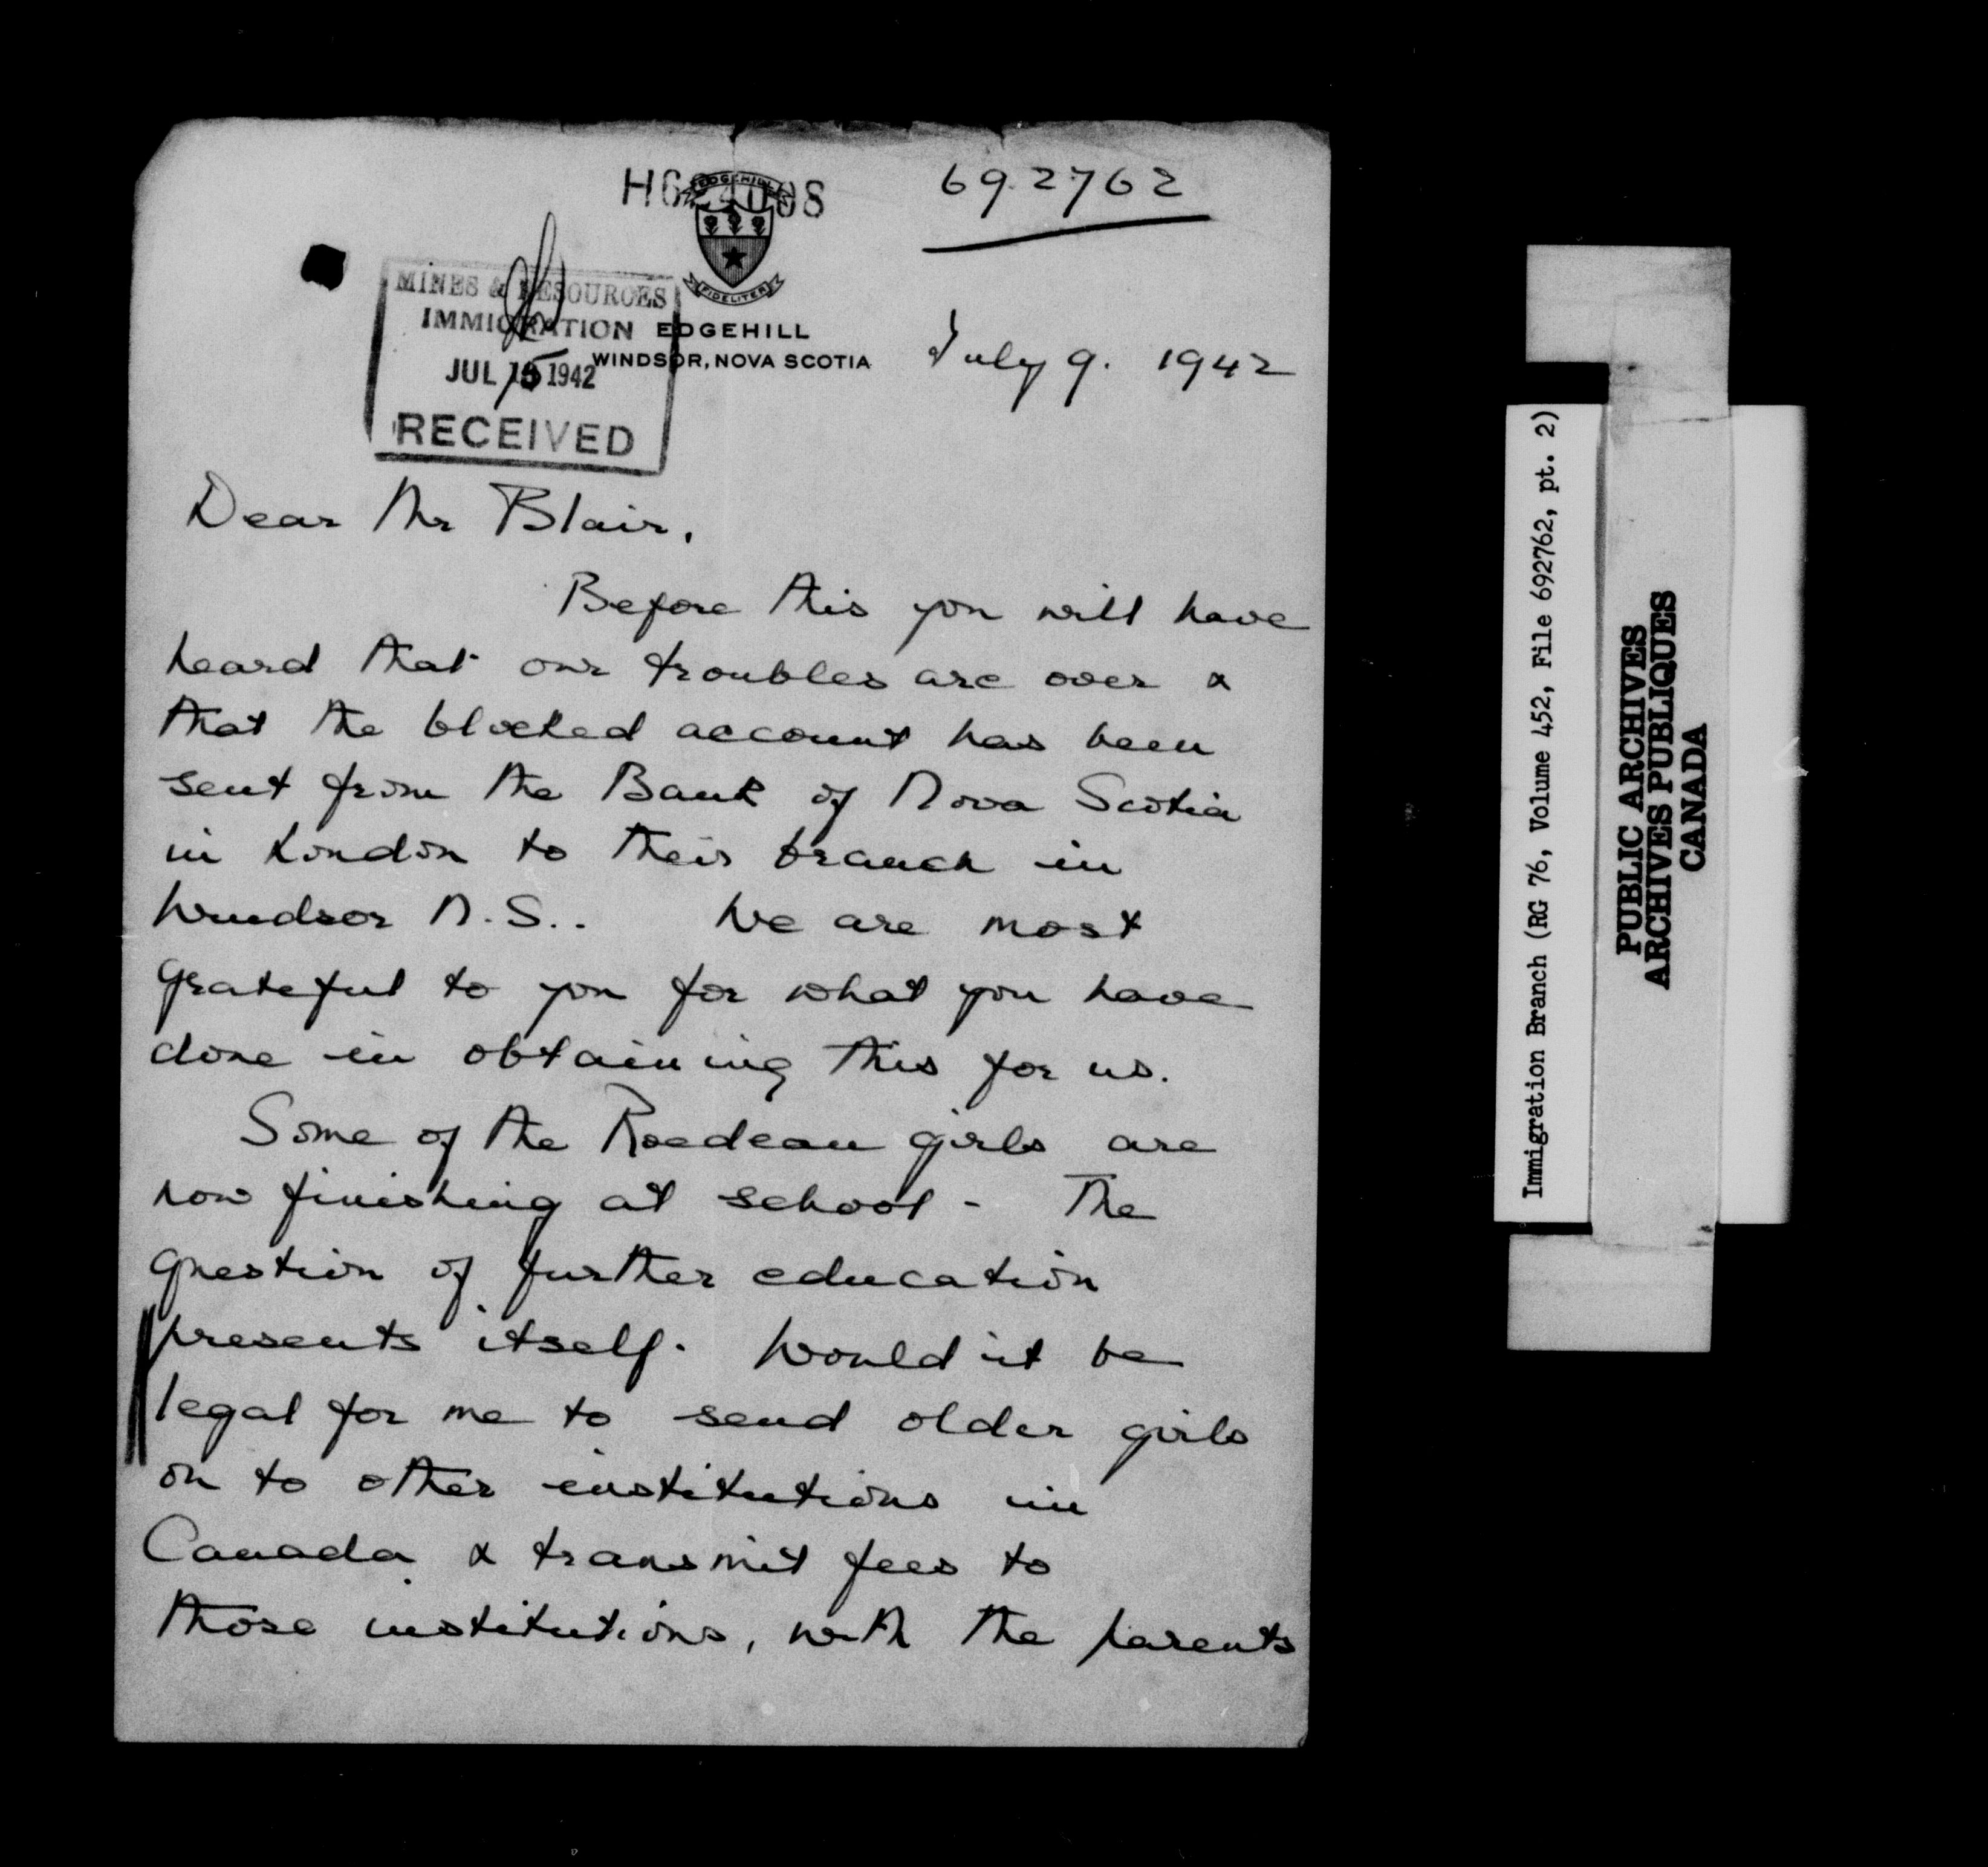 692762
EDGEHILL
FIDELITER
MINES & RESOURCES
IMMIGRATION
JUL 15 1942
RECEIVED
EDGEHILL
WINDSOR, NOVA SCOTIA
July 9. 1942
Dear Mr Blair,
Before this you will have
heard that our troubles are over &
that the blocked account has been
sent from the Bank of Nova Scotia
in London to their branch in
Windsor N.S.. We are most
grateful to you for what you have
done in obtaining this for us.
Some of the Roedean girls are
now finishing at school - The
question of further education
presents itself. Would it be
legal for me to send older girls
on to other institutions in
Canada & transmit fees to
those institutions, with the parents
Immigration Branch (RG 76, Volume 452, File 692762, pt. 2)
PUBLIC ARCHIVES
ARCHIVES PUBLIQUES
CANADA